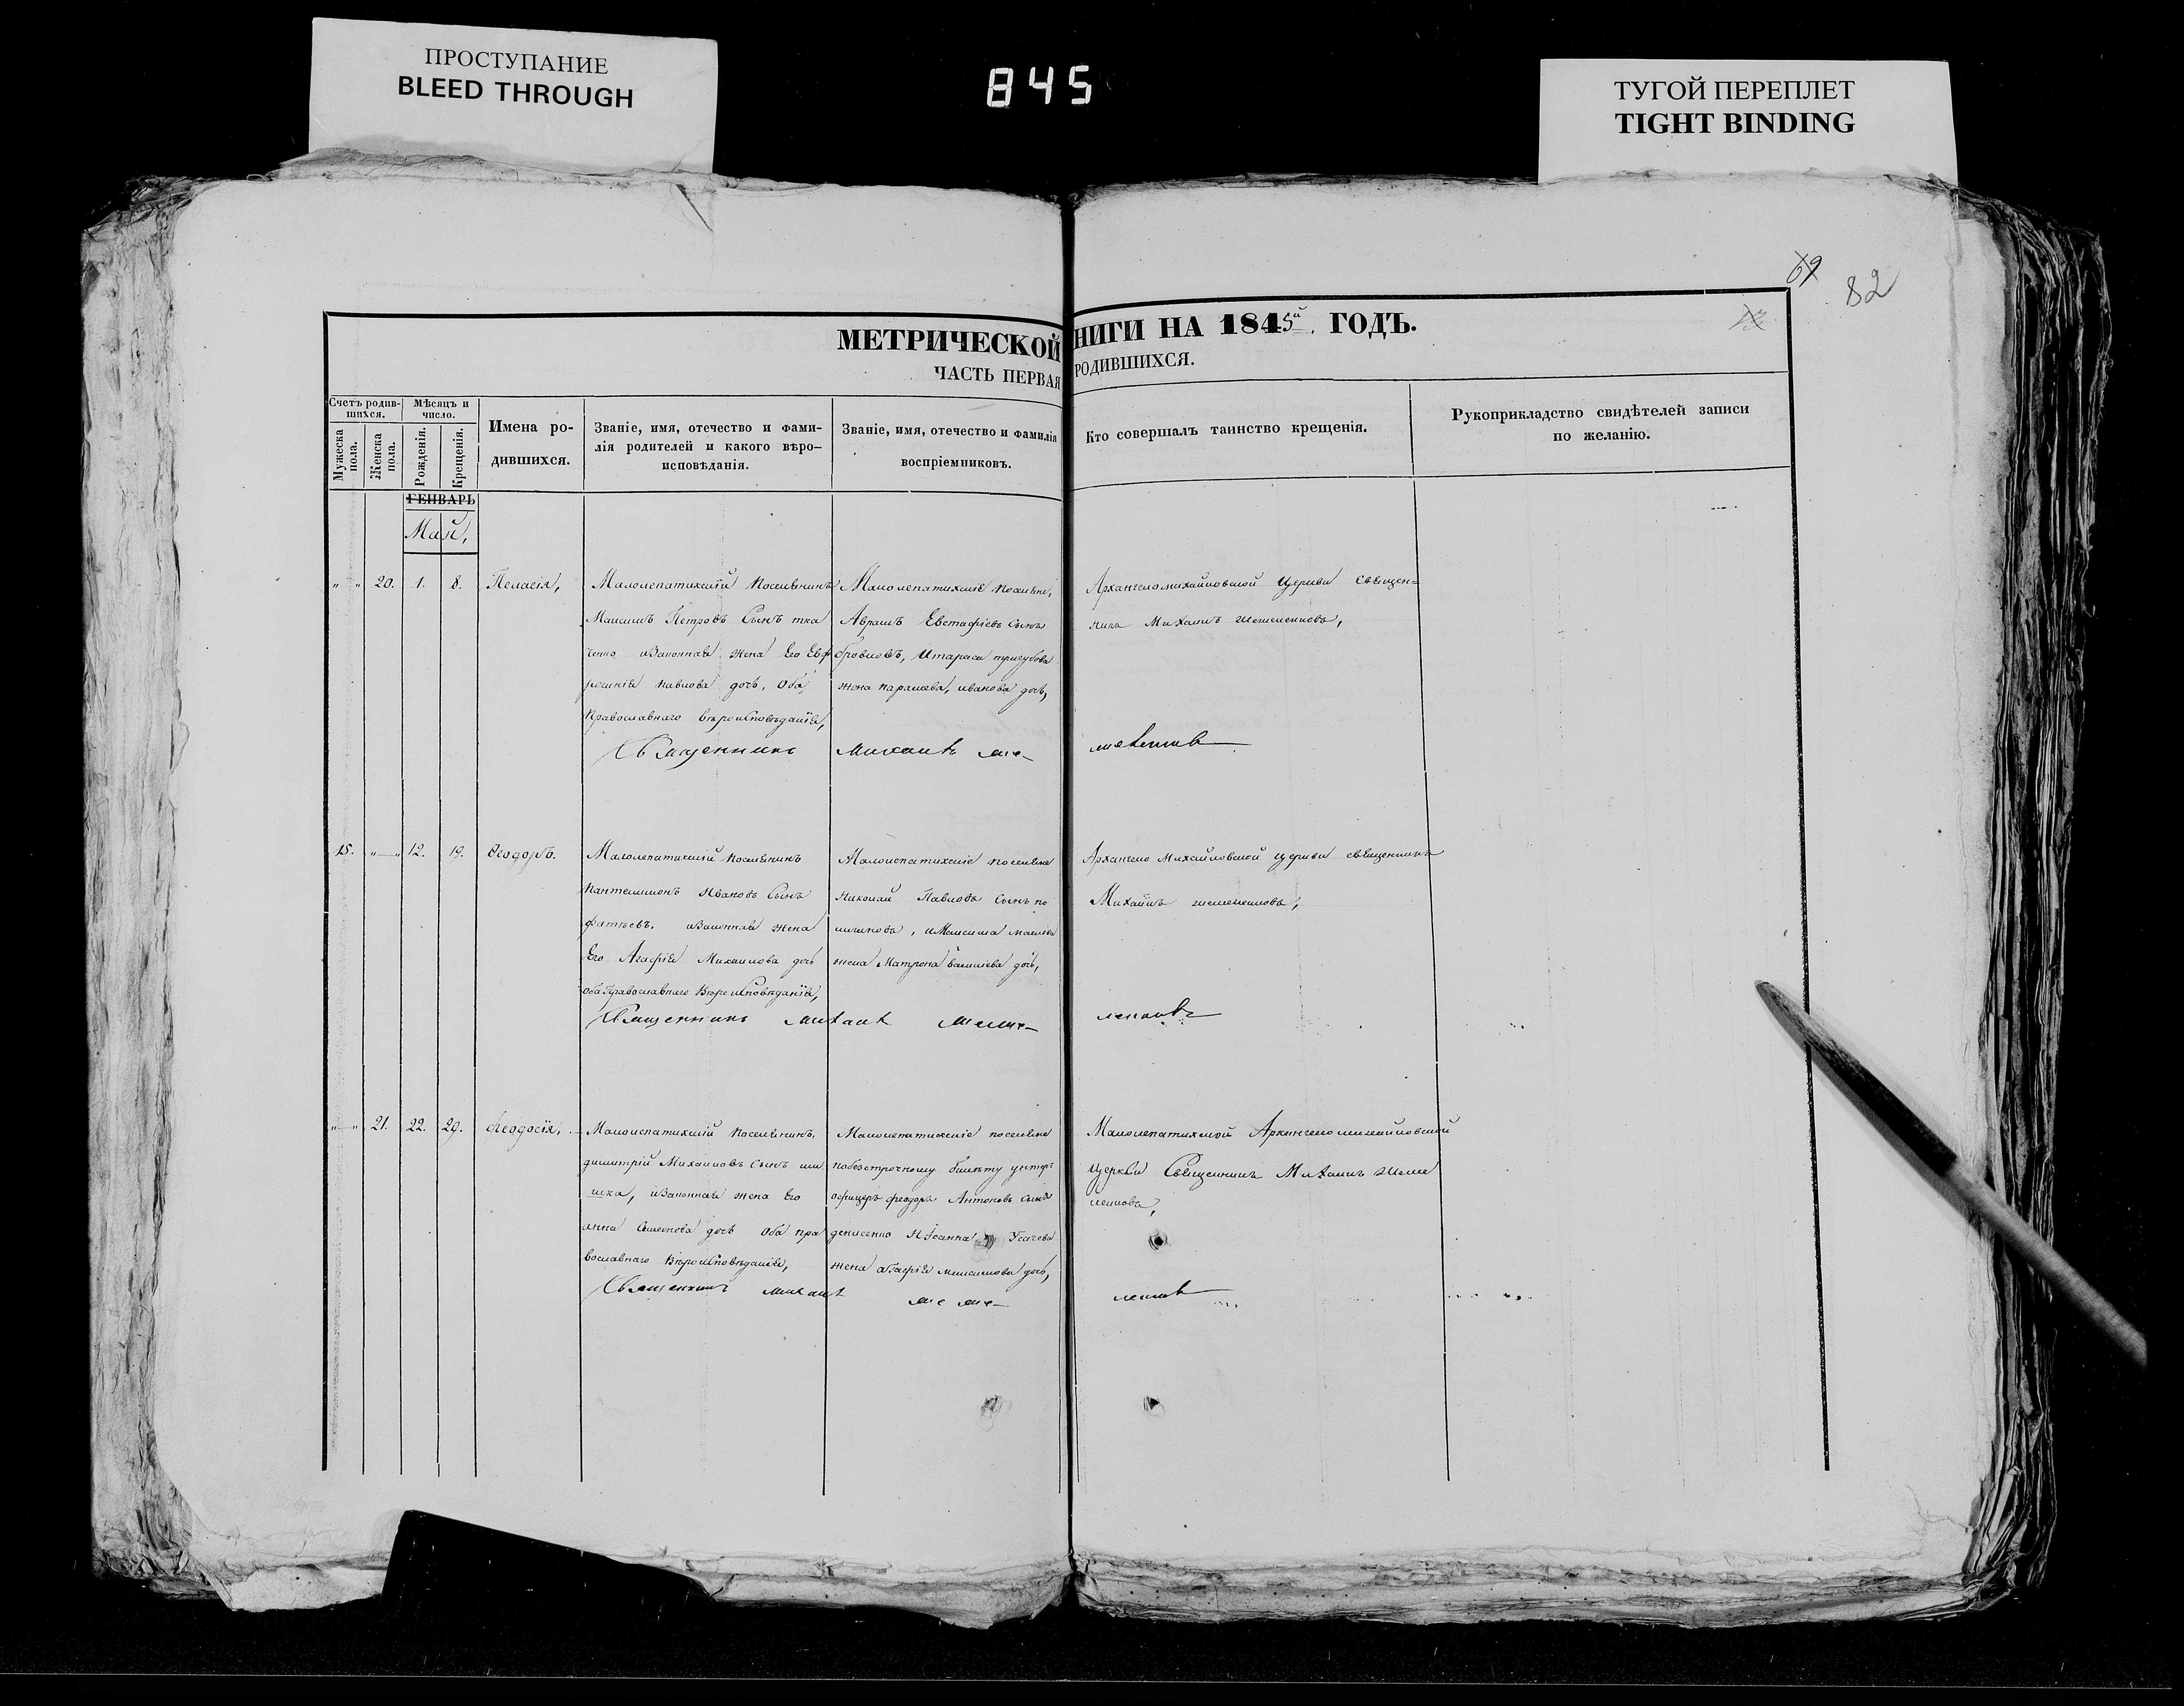 ПРОСТУПАНИЕ
BLEED THROUGH
845
ТУГОЙ ПЕРЕПЛЕТ
TIGHT BINDING
69 82
МЕТРИЧЕСКОЙ
НИГИ НА 1845й. ГОДЪ.
ЧАСТЬ ПЕРВАЯ
РОДИВШИХСЯ.
Счетъ родив-
шихся.
Мужеска
пола.
Женска
пола.
Мѣсяцъ и
число.
Рожденія.
Крещенія.
Имена ро-
дившихся.
Званіе, имя, отечество и фами-
лія родителей и какого вѣро-
исповѣданія.
Званіе, имя, отечество и фамилія
воспріемниковъ.
Кто совершалъ таинство крещенія.
Рукоприкладство свидѣтелей записи
по желанію.
ГЕНВАРЬ
Май,
"—" 20. 1. 8. Пелагія,
Малолепатихскій поселянинъ
Максимъ Петровъ Сынъ тка
ченко изаконная жена Его Евф
росинія павлова дочь, оба
православнаго вѣроисповѣданія,
Малолепатихскіе поселяне,
Аврамъ Евстафіевъ Сынъ
Итараса тригубова
жена параскева, иванова дочь,
Архангеломихайловской Церкви Священ=
ника Михаилъ
Священникъ Михаилъ
15. "—" 12. 19. Феодоръ.
Малолепатихскій поселянинъ
пантелимонъ Ивановъ Сынъ
изаконная жена
Его Агафія Михаилова дочь
оба Православнаго Вѣроисповѣданія,
Малолепатихскіе поселяне
Николай Павловъ Сынъ по
жена Матрона василіева дочь,
Архангело Михайловской церкви священникъ
Михаилъ
Священникъ Михаилъ
"—" 21. 22. 29. феодосія,
Малолепатихскій поселянинъ,
димитрій Михаиловъ Сынъ
изаконная жена Его
анна Симеонова дочь оба пра
вославнаго Вѣроисповѣданія,
Малолепатихскіе поселяне
побезсрочному билету унтеръ
офицеръ феодоръ Антоновъ Сынъ
денисенко ИІоанна Усачева
жена агафія максимова дочь,
Малолепатихской Архангеломихайловской
Церкви Священникъ Михаилъ
Священникъ Михаилъ